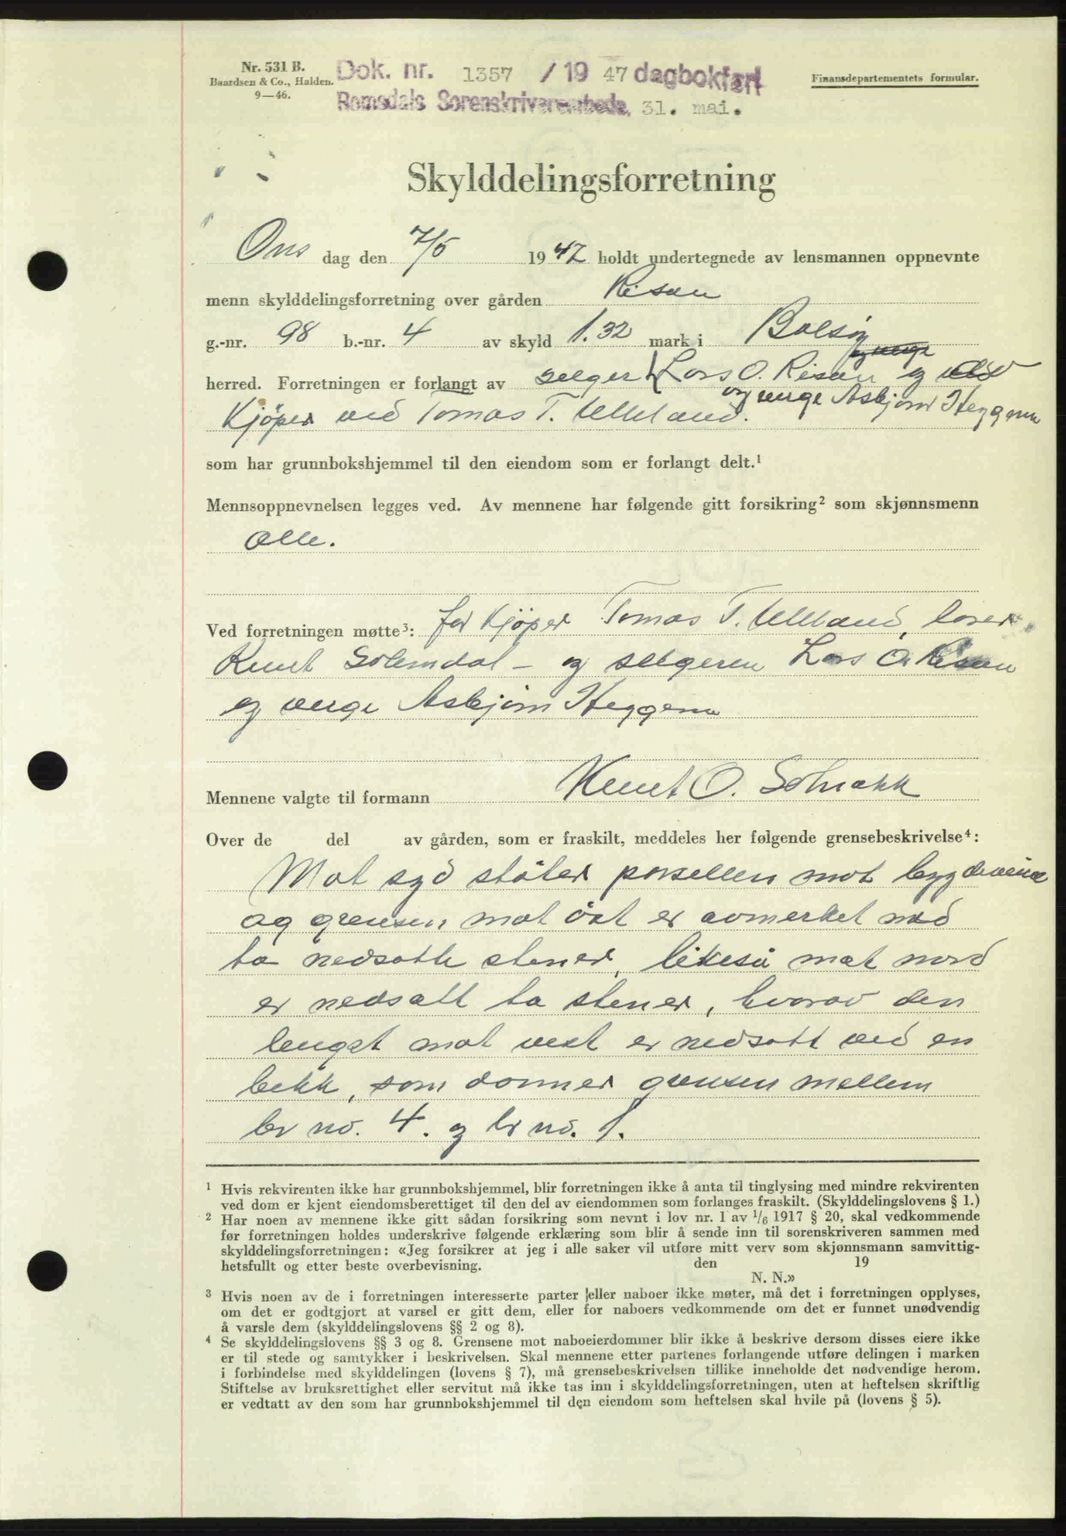 Nr. 531 B.
Baardsen & Co., Halden.
9—46.
Dok. nr. 1357 / 19 47 dagbokført
Romsdals Sorenskriverembede, 31. mai.
Finansdepartementets formular.
Skylddelingsforretning
Ons dag den 7/5 1947 holdt undertegnede av lensmannen oppnevnte
menn skylddelingsforretning over gården Risan
g.-nr. 98 b.-nr. 4 av skyld 1.32 mark i Bolsøy
herred. Forretningen er forlangt av selger Lars O. Risan og
og verge Asbjørn Heggem
Kjøper ved Tomas T. Ulleland.
som har grunnbokshjemmel til den eiendom som er forlangt delt.¹
Mennsoppnevnelsen legges ved. Av mennene har følgende gitt forsikring² som skjønnsmenn
Alle.
Ved forretningen møtte³: for Kjøper Tomas T. Ulleland,
Knut Solemdal – og selgeren Lars O. Risan
og verge Asbjørn Heggem
Mennene valgte til formann Knut O. Solnakk
Over de del av gården, som er fraskilt, meddeles her følgende grensebeskrivelse⁴:
Mot syd støter parsellen mot
og grensen mot øst er avmerket med
to nedsatte stener, likeså mot nord
er nedsatt to stener, hvorav den
lengst mot vest er nedsatt ved en
bekk, som danner grensen mellem
br no. 4. og br no. 1.
¹ Hvis rekvirenten ikke har grunnbokshjemmel, blir forretningen ikke å anta til tinglysing med mindre rekvirenten
ved dom er kjent eiendomsberettiget til den del av eiendommen som forlanges fraskilt. (Skylddelingslovens § 1.)
² Har noen av mennene ikke gitt sådan forsikring som nevnt i lov nr. 1 av 1/6 1917 § 20, skal vedkommende
før forretningen holdes underskrive følgende erklæring som blir å sende inn til sorenskriveren sammen med
skylddelingsforretningen: «Jeg forsikrer at jeg i alle saker vil utføre mitt verv som skjønnsmann samvittig-
hetsfullt og etter beste overbevisning. den 19
N. N.»
³ Hvis noen av de i forretningen interesserte parter eller naboer ikke møter, må det i forretningen opplyses,
om det er godtgjort at varsel er gitt dem, eller for naboers vedkommende om det er funnet unødvendig
å varsle dem (skylddelingslovens §§ 2 og 8).
⁴ Se skylddelingslovens §§ 3 og 8. Grensene mot naboeierdommer blir ikke å beskrive dersom disses eiere ikke
er til stede og samtykker i beskrivelsen. Skal mennene etter partenes forlangende utføre delingen i marken
i forbindelse med skylddelingen (lovens § 7), må grensebeskrivelsen tillike inneholde det nødvendige herom.
Stiftelse av bruksrettighet eller servitut må ikke tas inn i skylddelingsforretningen, uten at heftelsen skriftlig
er vedtatt av den som har grunnbokshjemmel til den eiendom som heftelsen skal hvile på (lovens § 5).